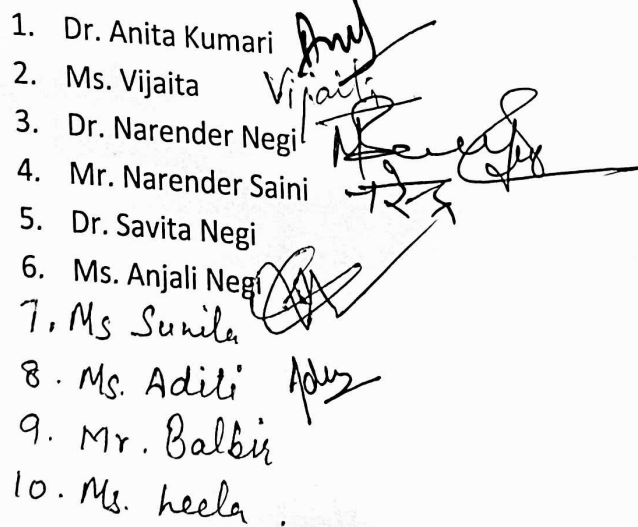 1. Dr. Anita Kumari
2. Ms. Vijaita Vijaita
3. Dr. Narender Negi
4. Mr. Narender Saini
5. Dr. Savita Negi
6. Ms. Anjali Negi
7. Ms Sunila
8. Ms. Aditi
9. Mr. Balbir
10. Ms. Leela.